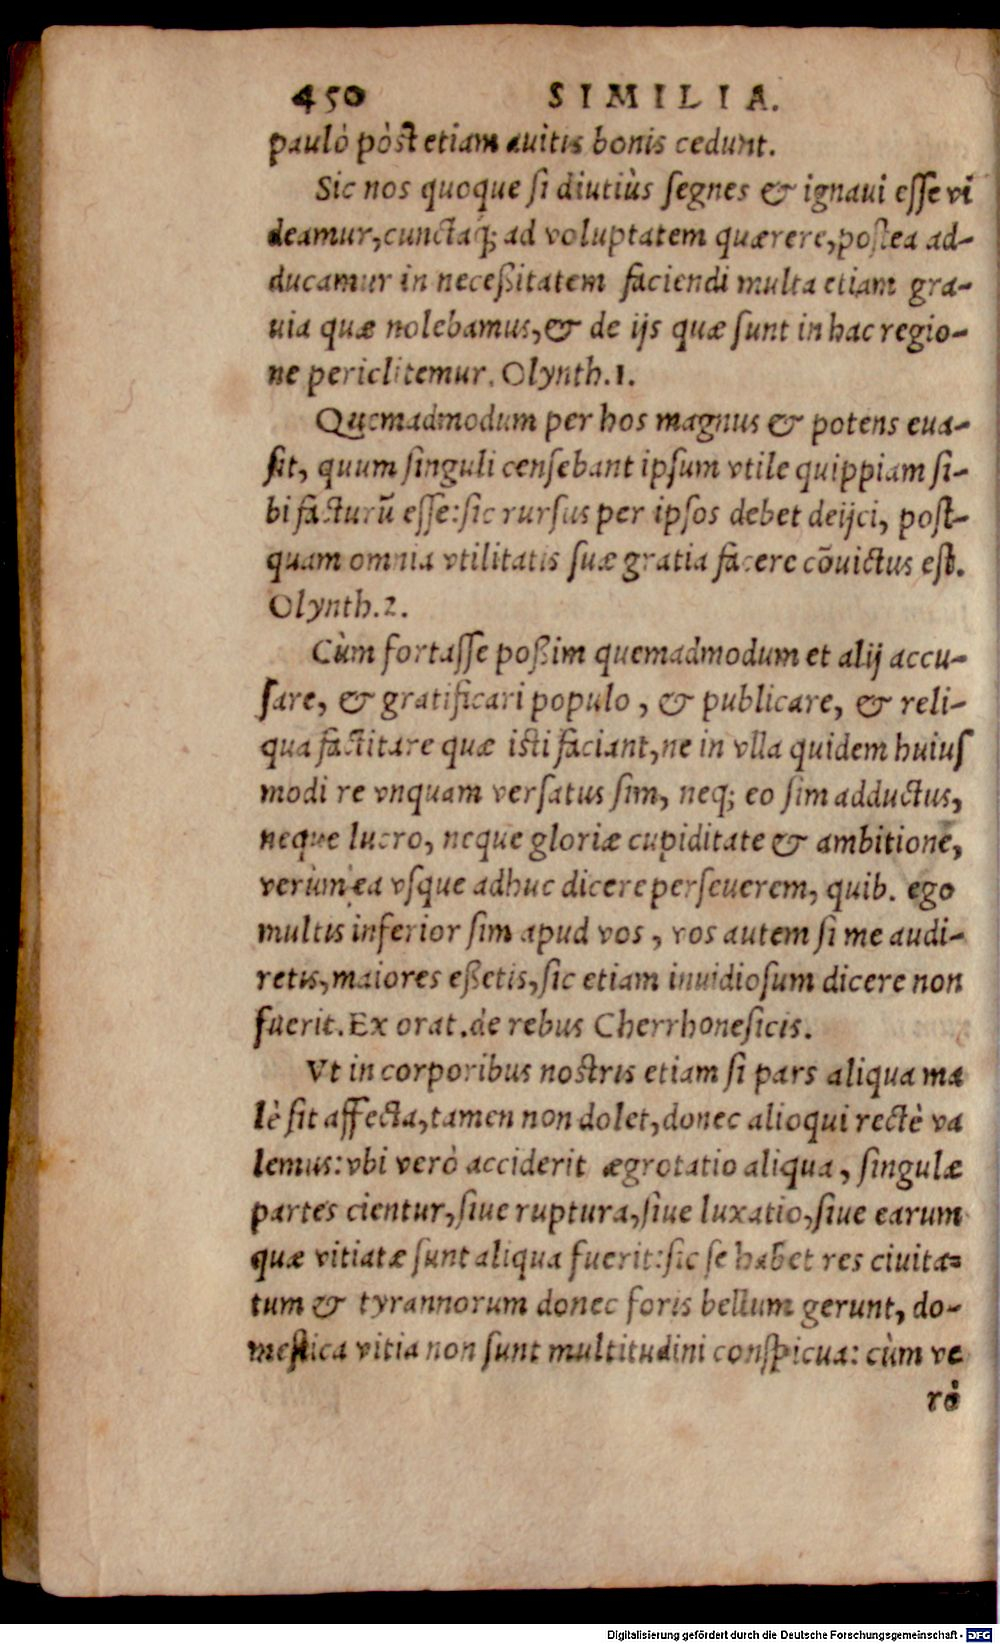 450 SIMILIA.
paulò pòst etiam auitis bonis cedunt.
Sic nos quoque si diutiùs segnes & ignaui esse vi
deamur, cunctaq; ad voluptatem quærere, postea ad-
ducamur in neceßitatem faciendi multa etiam gra-
uia quæ nolebamus, & de ijs quæ sunt in hac regio-
ne periclitemur. Olynth. 1.
Quemadmodum per hos magnus & potens eua-
sit, quum singuli censebant ipsum vtile quippiam si-
bi facturũ esse: sic rursus per ipsos debet deijci, post-
quam omnia vtilitatis suæ gratia facere cõuictus est.
Olynth. 2.
Cùm fortasse poßim quemadmodum et alij accu-
sare, & gratificari populo, & publicare, & reli-
qua factitare quæ isti faciant, ne in vlla quidem huius
modi re vnquam versatus sim, neq; eo sim adductus,
neque lucro, neque gloriæ cupiditate & ambitione,
verùm ea vsque adhuc dicere perseuerem, quib. ego
multis inferior sim apud vos, vos autem si me audi-
retis, maiores eßetis, sic etiam inuidiosum dicere non
fuerit. Ex orat. de rebus Cherrhonesicis.
Vt in corporibus nostris etiam si pars aliqua ma
lè sit affecta, tamen non dolet, donec alioqui rectè va
lemus: vbi verò acciderit ægrotatio aliqua, singulæ
partes cientur, siue ruptura, siue luxatio, siue earum
quæ vitiatæ sunt aliqua fuerit: sic se habet res ciuita=
tum & tyrannorum donec foris bellum gerunt, do-
mestica vitia non sunt multitudini conspicua: cùm ve
rò
Digitalisierung gefördert durch die Deutsche Forschungsgemeinschaft - DFG